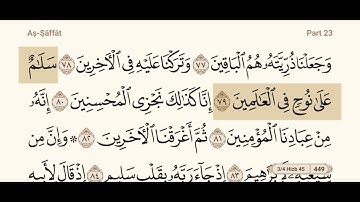 Aṣ-Ṣāffāt Part 23
وَجَعَلْنَا ذُرِّيَّتَهُۥ هُمُ ٱلْبَاقِينَ ٧٧ وَتَرَكْنَا عَلَيْهِ فِى ٱلْـَٔاخِرِينَ ٧٨ سَلَٰمٌ
عَلَىٰ نُوحٍ فِى ٱلْعَٰلَمِينَ ٧٩ إِنَّا كَذَٰلِكَ نَجْزِى ٱلْمُحْسِنِينَ ٨٠ إِنَّهُۥ
مِنْ عِبَادِنَا ٱلْمُؤْمِنِينَ ٨١ ثُمَّ أَغْرَقْنَا ٱلْـَٔاخَرِينَ ٨٢ ۞ وَإِنَّ مِن
شِيعَتِهِۦ لَإِبْرَٰهِيمَ ٨٣ إِذْ جَآءَ رَبَّهُۥ بِقَلْبٍ سَلِيمٍ ٨٤ إِذْ قَالَ لِأَبِيهِ
3/4 Hizb 45 449